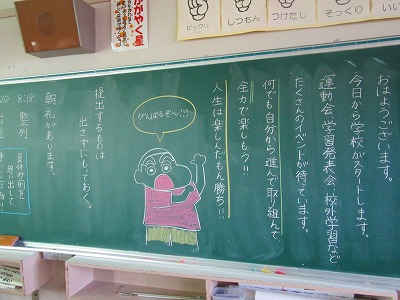 おはようございます。
今日から学校がスタートします。
運動会、学習発表会、校外学習など
たくさんのイベントが待っています。
何でも自分から進んで取り組んで
全力で楽しもう!!
人生は楽しんだもん勝ち!!
がんばるぞ〜!!!
提出するものは
出さずにもっておく。
朝礼があります。
8:18
整列
夏休み前を
思い出して
かがやく星
ビックリ
しつもん
つけたし
そっくり
いい